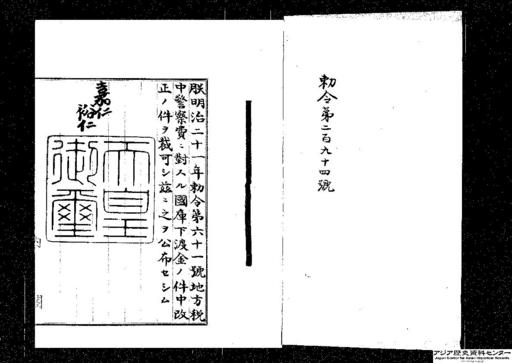 勅令第二百九十四號
朕明治二十一年勅令第六十一號地方税
中警察費ニ對スル國庫下渡金ノ件中改
正ノ件ヲ裁可シ茲ニ之ヲ公布セシム
嘉仁
裕仁
天皇
御璽
内閣
アジア歴史資料センター
Japan Center for Asian Historical Records